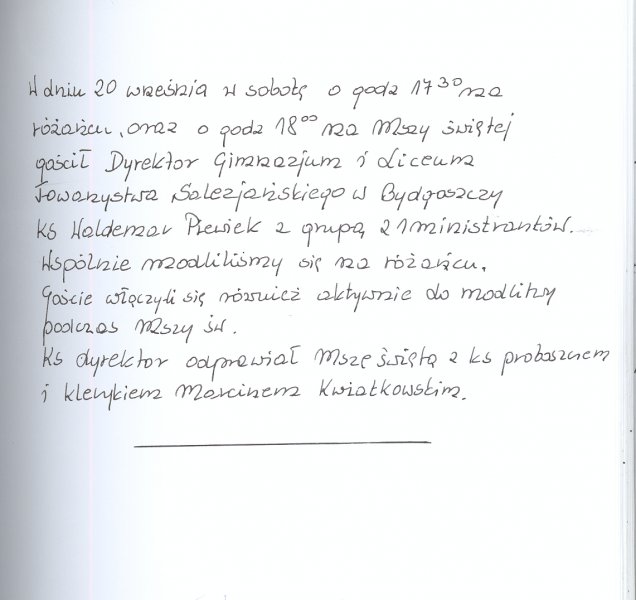 W dniu 20 września w sobotę o godz 17³⁰ na
różańcu, oraz o godz 18⁰⁰ na Mszy świętej
gościł Dyrektor Gimnazjum i Liceum
Towarzystwa Salezjańskiego w Bydgoszczy
ks Waldemar z grupą 21 ministrantów.
Wspólnie modliliśmy się na różańcu.
Goście włączyli się również aktywnie do modlitwy
podczas Mszy św.
Ks dyrektor odprawiał Mszę świętą z ks proboszczem
i klerykiem Marcinem Kwiatkowskim.